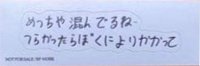 めっちゃ混んでるね
つらかったらぼくによりかかって
NOT FOR SALE/